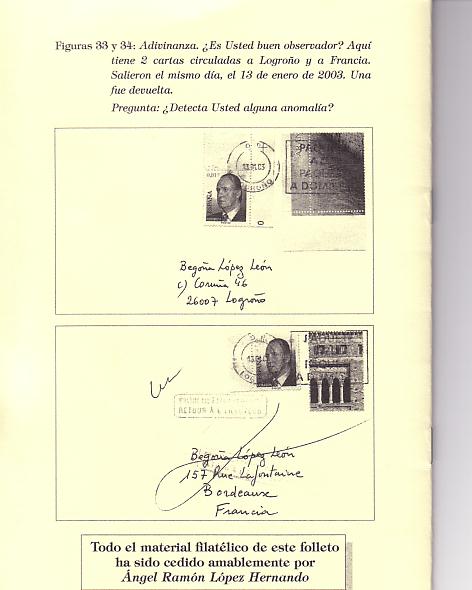 Figuras 33 y 34: Adivinanza. ¿Es Usted buen observador? Aquí
tiene 2 cartas circuladas a Logroño y a Francia.
Salieron el mismo día, el 13 de enero de 2003. Una
fue devuelta.
Pregunta: ¿Detecta Usted alguna anomalía?
ESPAÑA
A DOMI
Begoña López León
c) Coruña 46
26007 Logroño
RETOUR A
Begoña López León
157 Rue Lafontaine
Bordeaux
Francia
Todo el material filatélico de este folleto
ha sido cedido amablemente por
Ángel Ramón López Hernando